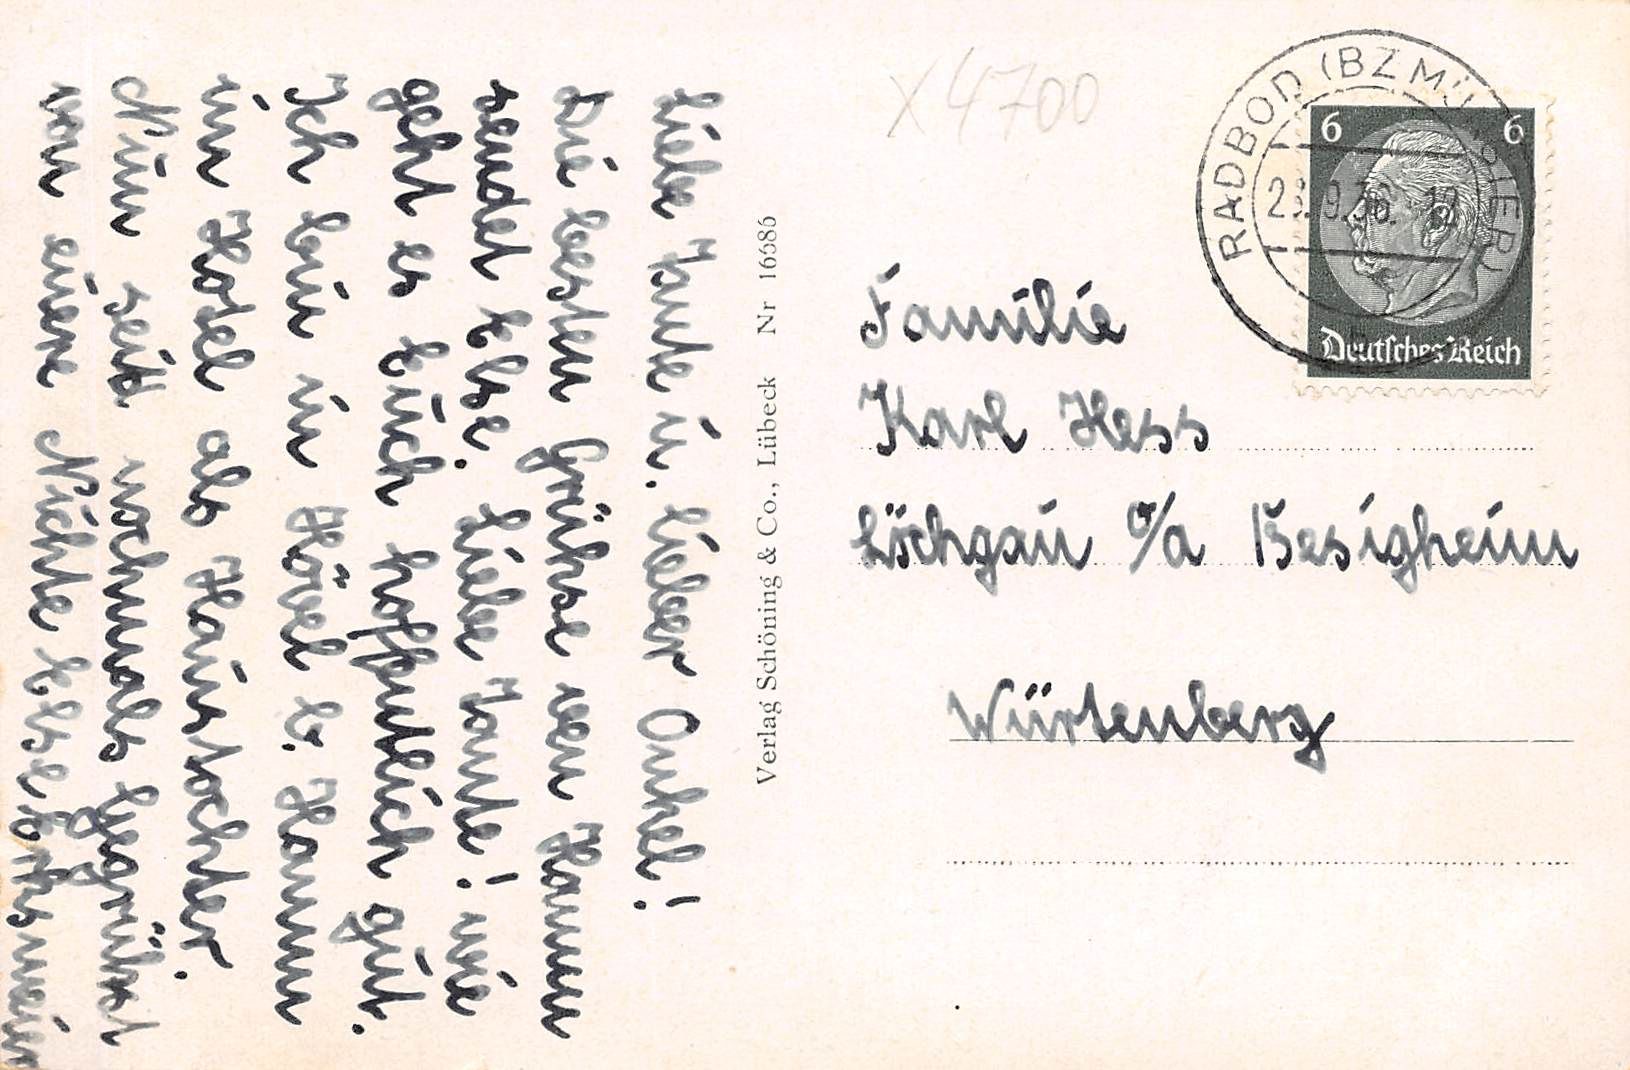 Liebe Tante u. lieber Onkel!
Die besten Grühse von Hamm
sendet Else. Liebe Tante! wie
geht es Euch hoffentlich gut.
Ich bin in Hövel b. Hamm
im Hotel als Haustochter.
Nun seid nochmals gegrühst
von eurer Nichte Else
Verlag Schöning & Co., Lübeck Nr 16586
X 4700
RADBOD (BZ MÜNSTER)
6 6
Deutsches Reich
Familie
Karl Hess
Löchgau O/A Besigheim
Würtenberg